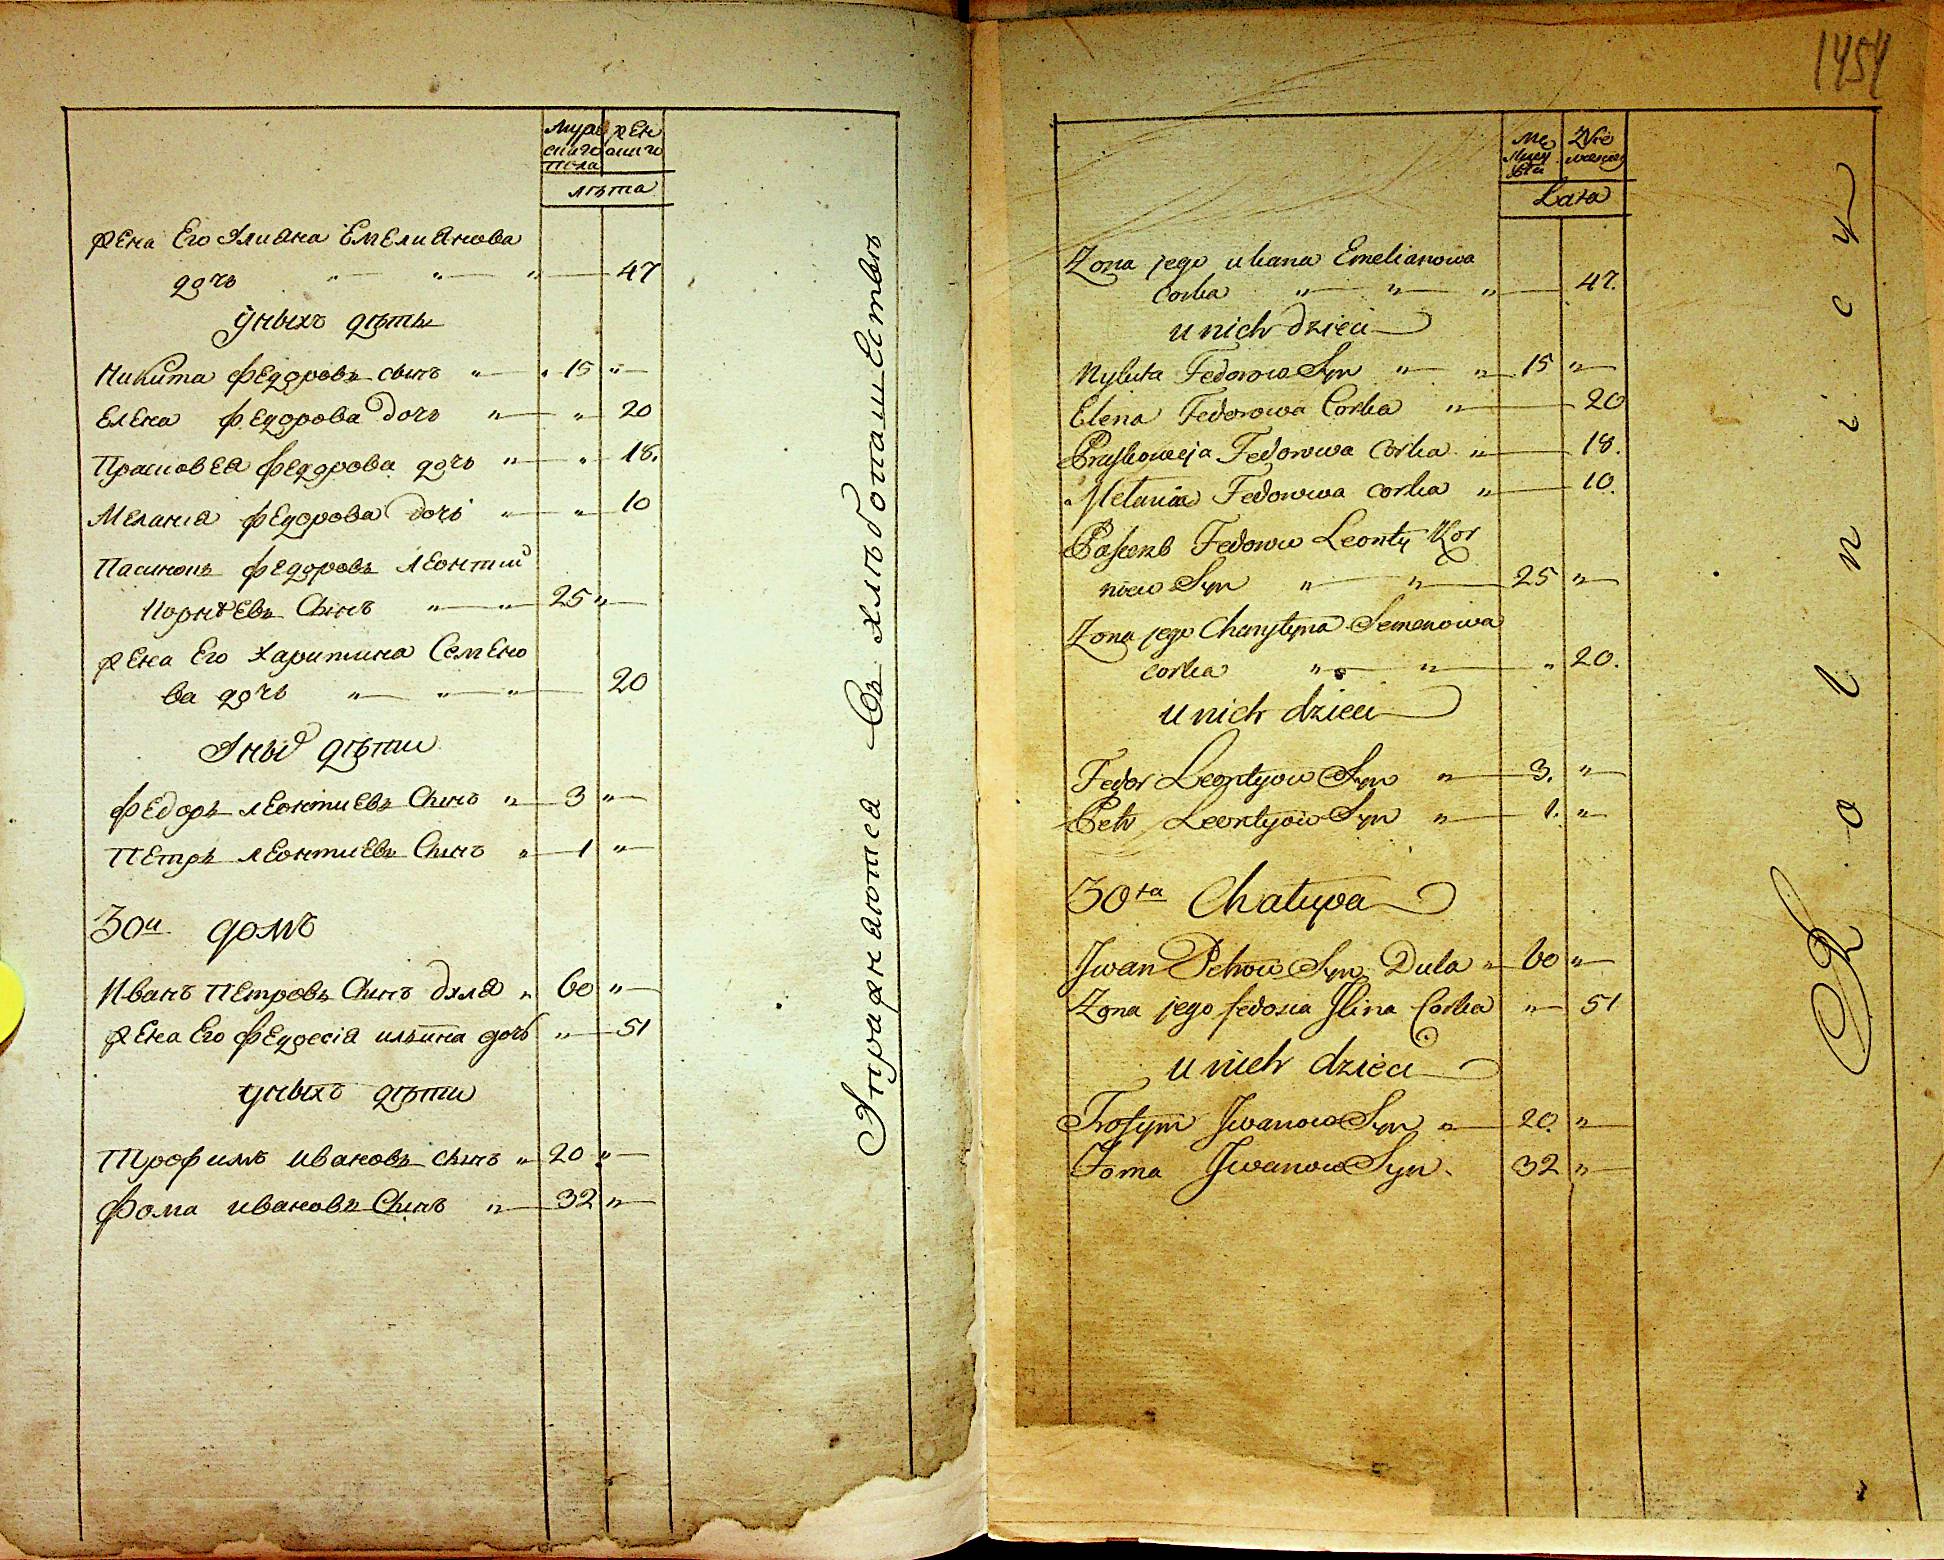 Мужескаго пола
женскаго
лѣта
жена Его Улиана Емелианова
дочь " " " 47
У ныхъ дѣти
Никита Федоровъ сынъ " " 15 "
Елена Федорова дочь " " 20
Прасковея Федорова дочь " " 18.
Меланiа Федорова дочь " " 10
Пасинокъ Федоровъ Леонтий
Корнѣевъ Сынъ " " 25 "
жена Его Харитина Семено
ва дочь " " " 20
У ных дѣти
Федоръ Леонтиевъ Сынъ " 3 "
Петръ Леонтиевъ Сынъ " 1 "
30и домъ
Иванъ Петровъ Сынъ " 60 "
жена Его Феодосiа ильина дочь " 51
у ныхъ дѣти
Трофимъ Ивановъ сынъ " 20 "
Фома ивановъ Сынъ " 32 "
Упражнаютса Въ хлѣбопашествѣ
1454
Lata
Zona jego uliana Emelianowa
Corka " " " 47.
u nich dzieci
Nykita Fedorow Syn " " 15 "
Elena Fedorowa Corka " 20
Praskoweja Fedorowa corka " 18.
Melania Fedorowa corka " 10.
Pasenb Fedorow Leonty Kor
niew Syn " " 25 "
Zona jego Charytyna Semenowa
corka " " " 20.
u nich dzieci
Fedor Leontyow Syn " 3. "
Petr Leontyow Syn " 1. "
30ta Chalupa
Jwan Petrow Syn Dula " 60 "
Zona jego fedosia Jlina Corka " 51
u nich dzieci
Trofym Jwanow Syn " 20. "
Foma Jwanow Syn. 32 "
Rolnicy